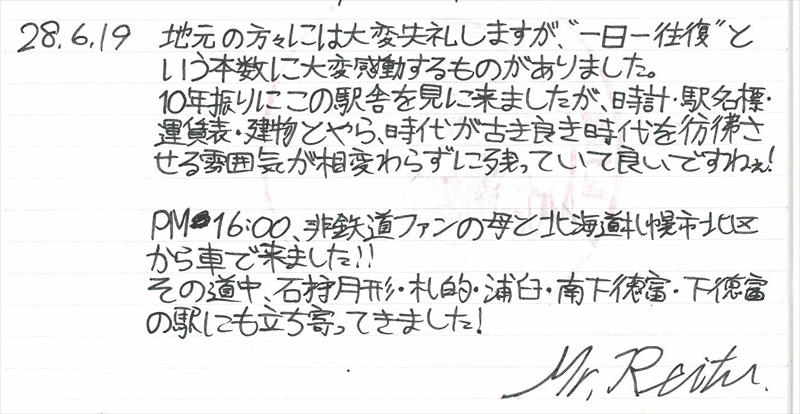 28.6.19 地元の方々には大変失礼しますが、"一日一往復"と
いう本数に大変感動するものがありました。
10年振りにこの駅舎を見に来ましたが、時計・駅名標・
運賃表・建物とやら、時代が古き良き時代を彷彿さ
せる雰囲気が相変わらずに残っていて良いですねぇ!
PM 16:00、非鉄道ファンの母と北海道札幌市北区
から車で来ました!!
その道中、石狩月形・札的・浦臼・南下徳富・下徳富
の駅にも立ち寄ってきました!
Mr. Reitu.